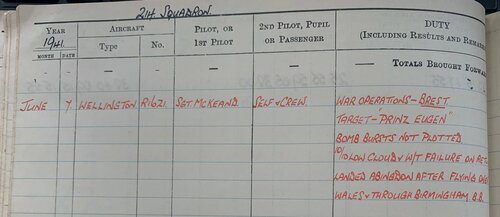 214 SQUADRON
YEAR AIRCRAFT PILOT, OR 2ND PILOT, PUPIL DUTY
1941. Type No. 1ST PILOT OR PASSENGER (INCLUDING RESULTS AND REMARKS
MONTH DATE
— — — — TOTALS BROUGHT FORWARD
JUNE 7 WELLINGTON SGT MCKEAND. SELF & CREW WAR OPERATIONS - BREST
TARGET - "PRINZ EUGEN"
BOMB BURSTS NOT PLOTTED
10/10 LOW CLOUD & W/T FAILURE ON
LANDED ABINGDON AFTER FLYING
WALES & THROUGH BIRMINGHAM. B.B.